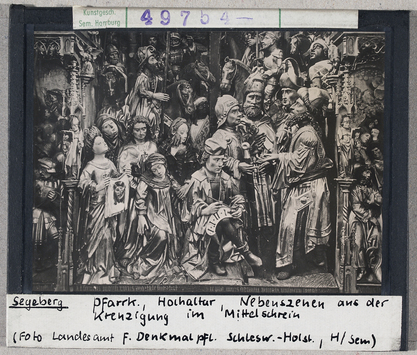 Kunstgesch.
Sem. Hamburg
49754-
Segeberg Pfarrk., Hochaltar, Nebenszenen aus der
Kreuzigung im Mittelschrein
(Foto Landesamt F. Denkmalpfl. Schlesw.-Holst., H/Sem)